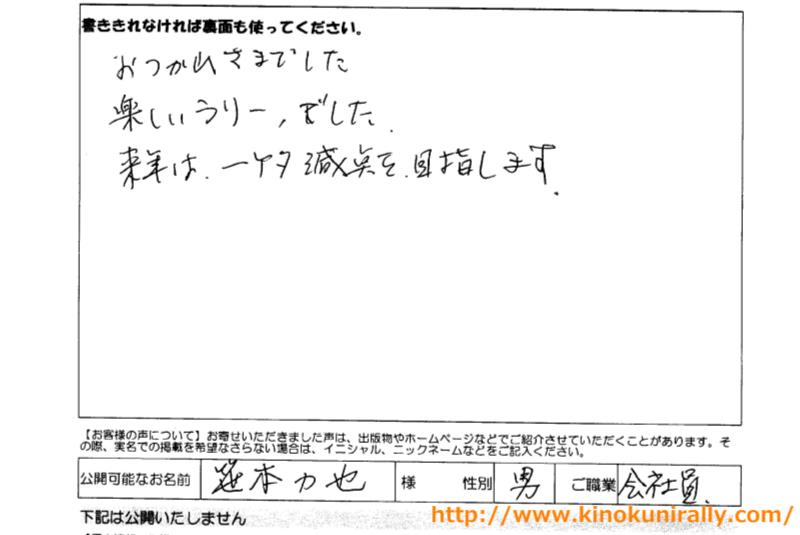 書ききれなければ裏面も使ってください。
おつかれさまでした
楽しいラリー,でした.
来年は.一ケタ減点を.目指します.
【お客様の声について】お寄せいただきました声は、出版物やホームページなどでご紹介させていただくことがあります。そ
の際、実名での掲載を希望なさらない場合は、イニシャル、ニックネームなどをご記入ください。
公開可能なお名前 笹本力也 様 性別 男 ご職業 会社員.
下記は公開いたしません
http://www.kinokunirally.com/